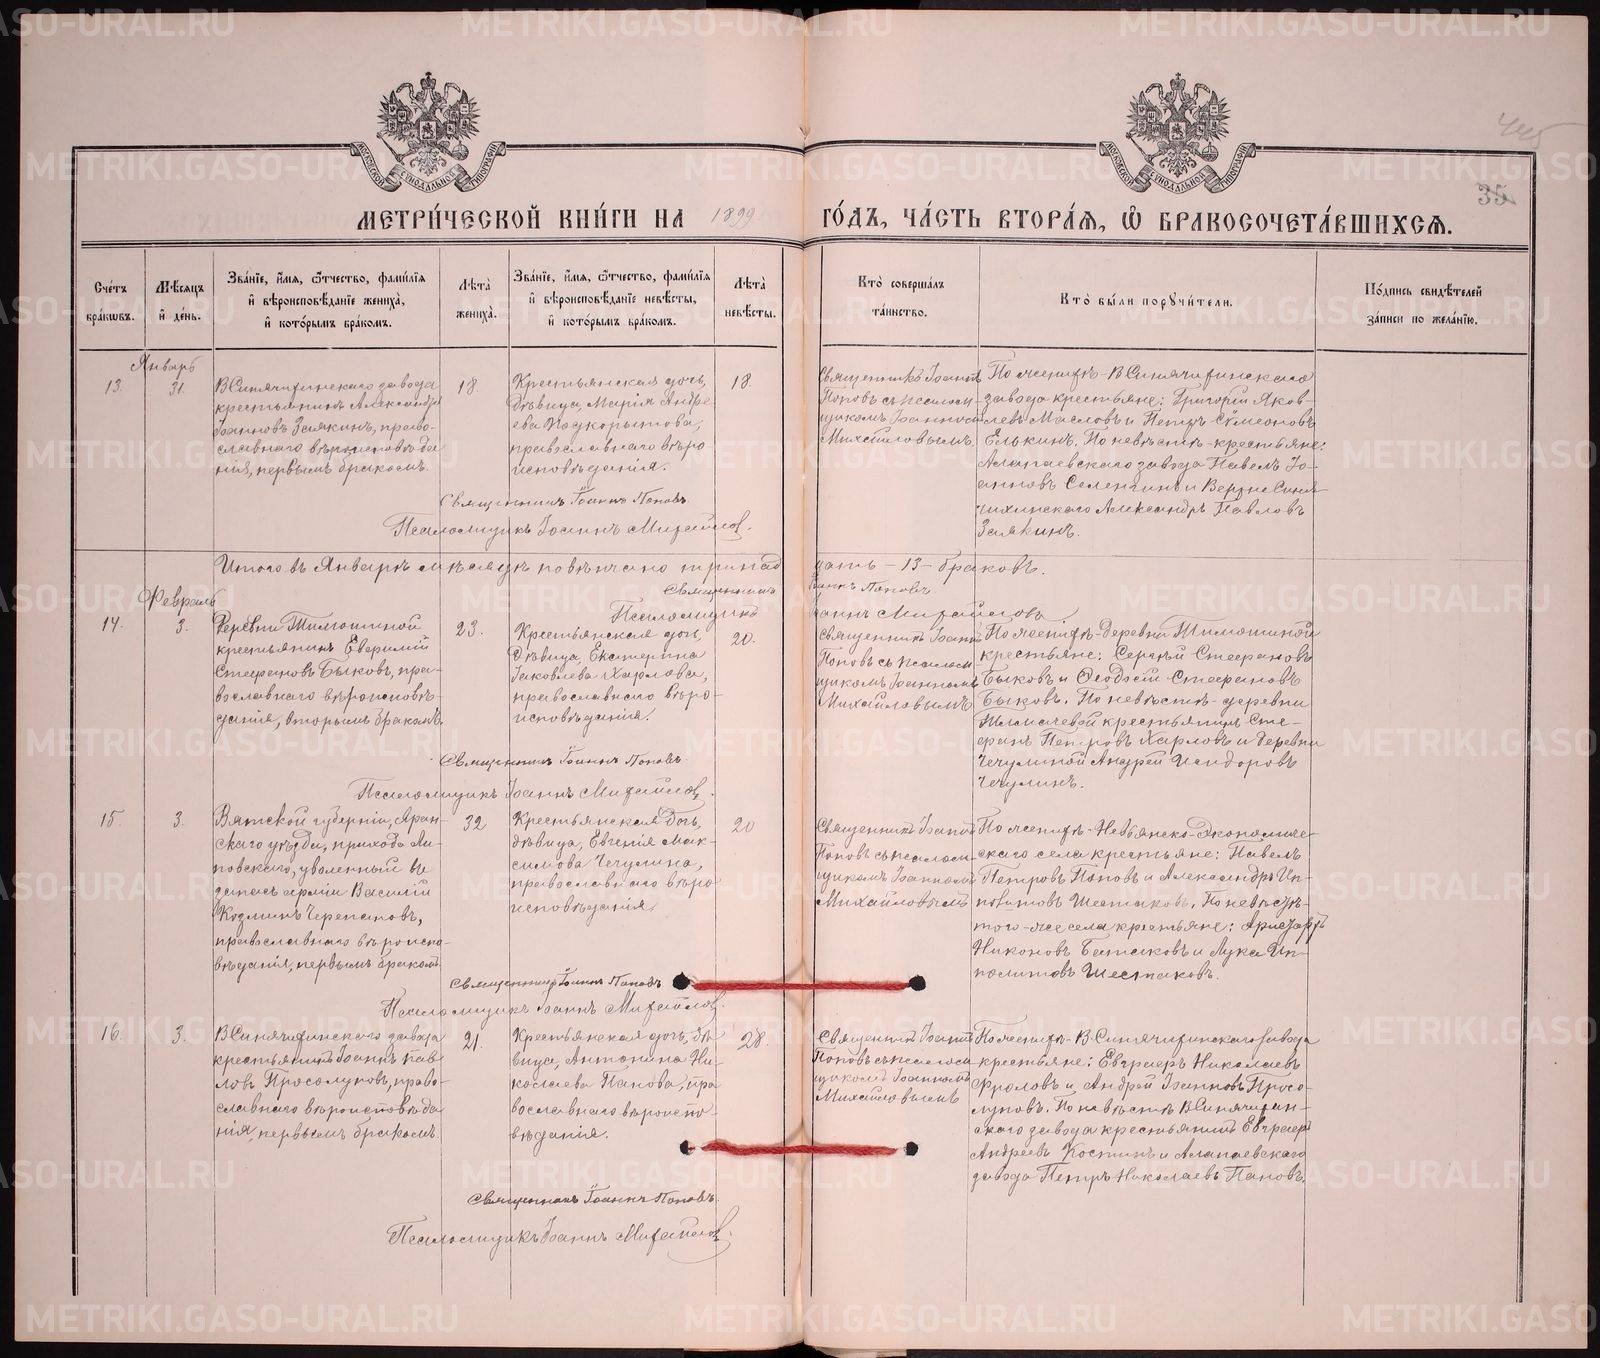 МЕТРИ́ЧЕСКОЙ КНИ́ГИ НА 1899
ГО́ДЪ, ЧА́СТЬ ВТОРА́Я, Ѽ БРАКОСОЧЕТА́ВШИХСЯ.
35
Сче́тъ бра́кѡвъ.
Мѣ́сяцъ и де́нь.
Зва́нїе, и́мя, ѻ́тчество, фами́лїя
и вѣроисповѣ́данїе жениха̀,
и кото́рымъ бра́комъ.
Лѣта̀ жениха̀.
Зва́нїе, и́мя, ѻ́тчество, фами́лїя
и вѣроисповѣ́данїе невѣ́сты,
и кото́рымъ бра́комъ.
Лѣта̀ невѣ́сты.
Кто̀ соверша́лъ
та́инство.
Кто̀ бы́ли порꙋчи́тели.
По́дпись свидѣ́телей
за́писи по жела́нїю.
Январь
13.
31.
В Синячихинскаго завода
крестьянинъ Александръ
Іоанновъ Заякинъ, право-
славнаго вѣроисповѣда
нія, первымъ бракомъ.
18
Крестьянская дочь,
дѣвица, Марія Андре
ева Подкорытова,
православнаго вѣро
исповѣданія.
18
Священникъ Іоаннъ
Поповъ съ псалом
щикомъ Іоанном
Михайловымъ
По женихѣ - В Синячихинскаго
завода крестьяне: Григорій Яков-
левъ Масловъ и Петръ Сѵмеоновъ
Елькинъ. По невѣстѣ - крестьяне:
Алапаевскаго завода Павелъ Іо-
анновъ Селенгинъ и Верхне Синя-
чихинскаго Александръ Павловъ
Заякинъ.
Священникъ Іоаннъ Поповъ
Псаломщикъ Іоаннъ Михайлов.
Итого въ Январѣ мѣсяцѣ повѣнчано тринад
цать - 13 - браковъ.
Священникъ Іоаннъ Поповъ
Псаломщикъ Іоаннъ Михайловъ
Февраль
14.
3.
Деревни Тимошиной
крестьянинъ
Стефановъ Быковъ, пра-
вославнаго вѣроисповѣ-
данія, вторымъ бракомъ.
23.
Крестьянская дочь,
дѣвица, Екатерина
Іаковлева Харлова,
православнаго вѣро-
исповѣданія.
20.
Священникъ Іоаннъ
Поповъ съ псалом
щикомъ Іоанномъ
Михайловымъ
По женихѣ - деревни Тимошиной
крестьяне: Сергѣй Стефановъ
Быковъ и Ѳеодосій Стефановъ
Быковъ. По невѣстѣ - деревни
крестьянинъ Сте-
фанъ Петровъ Харловъ и деревни
Чечулиной Андрей Исидоровъ
Чечулинъ.
Священникъ Іоаннъ Поповъ.
Псаломщикъ Іоаннъ Михайлов.
15.
3.
Вятской губерніи, Яран-
скаго уѣзда, прихода Ли-
повскаго, уволенный въ
запасъ арміи Василій
Козминъ Черепановъ,
православнаго вѣроиспо-
вѣданія, первымъ бракомъ.
32
Крестьянская дочь,
дѣвица, Евгенія Мак-
симова Чечулина,
православнаго вѣро
исповѣданія.
20
Священникъ Іоаннъ
Поповъ съ псалом-
щикомъ Іоанном
Михайловымъ
По женихѣ - Невьянско-Экономиче-
скаго села крестьяне: Павелъ
Петровъ Поповъ и Александръ Ип-
политовъ Шестаковъ. По невѣстѣ-
того-же села крестьяне:
Никоновъ и Лука Ип-
политовъ Шестаковъ.
Священникъ Іоаннъ Поповъ
Псаломщикъ Іоаннъ Михайлов.
16.
3.
В Синячихинскаго завода
крестьянинъ Іоаннъ Пав
ловъ Просолуповъ, право-
славнаго вѣроисповѣда
нія, первымъ бракомъ.
21.
Крестьянская дочь, дѣ
вица, Антонина Ни-
колаева Панова, пра
вославнаго вѣроиспо-
вѣданія.
28.
Священникъ Іоаннъ
Поповъ съ псалом
щикомъ Іоанномъ
Михайловымъ
По женихѣ - В Синячихинскаго завода
крестьяне: Евграфъ Николаевъ
Фроловъ и Андрей Іоанновъ Просо-
луповъ. По невѣстѣ В Синячихин-
скаго завода крестьянинъ Евграфъ
Андреевъ Костинъ и Алапаевскаго
завода Петръ Николаевъ Пановъ.
Священникъ Іоаннъ Поповъ.
Псаломщикъ Іоаннъ Михайлов.
METRIKI.GASO-URAL.RU